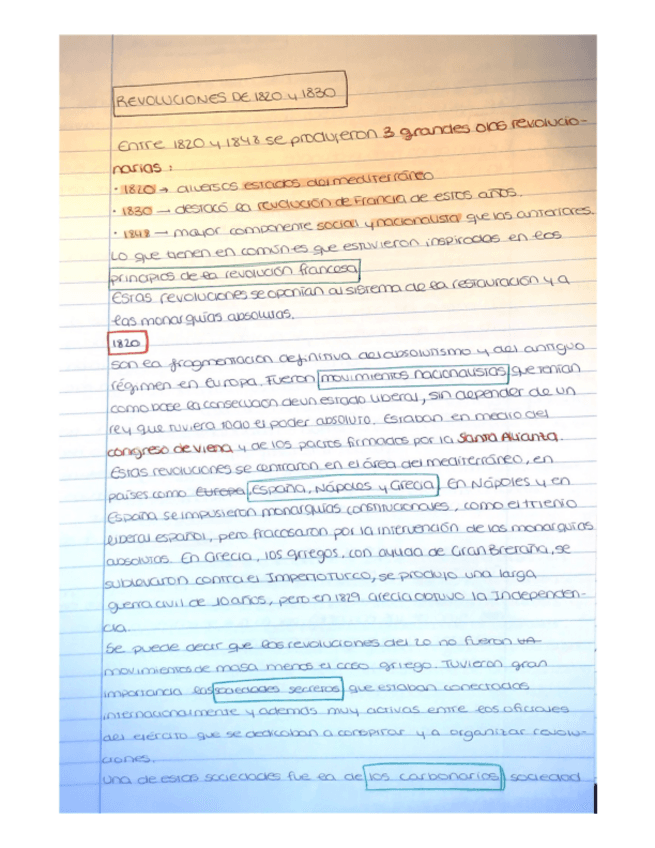 REVOLUCIONES DE 1820 y 1830
Entre 1820 y 1848 se produjeron 3 grandes olas revolucio-
narias:
· 1820 → diversos estados del mediterráneo
· 1830 → destacó la revolución de Francia de estos años.
· 1848 → mayor componente social y nacionalista que las anteriores.
Lo que tienen en común es que estuvieron inspiradas en los
principios de la revolución francesa
Estas revoluciones se oponían al sistema de la restauración y a
las monarquías absolutas.
1820
Son la fragmentación definitiva del absolutismo y del antiguo
régimen en Europa. Fueron movimientos nacionalistas que tenían
como base la consecución de un estado liberal, sin depender de un
rey que tuviera todo el poder absoluto. Estaban en medio del
congreso de viena y de los pactos firmados por la Santa Alianza.
Estas revoluciones se centraron en el área del mediterráneo, en
países como Europa España, Nápoles y Grecia. En Nápoles y en
España se impusieron monarquías constitucionales, como el trienio
liberal español, pero fracasaron por la intervención de las monarquías
absolutas. En Grecia, los griegos, con ayuda de Gran Bretaña, se
sublevaron contra el Imperio Turco, se produjo una larga
guerra civil de 10 años, pero en 1829 Grecia obtuvo la Independen-
cia.
Se puede decir que las revoluciones del 20 no fueron
movimientos de masa menos el caso griego. Tuvieron gran
importancia las sociedades secretas que estaban conectadas
internacionalmente y además muy activas entre los oficiales
del ejército que se dedicaban a conspirar y a organizar revolu-
ciones.
Una de estas sociedades fue la de los carbonarios, sociedad